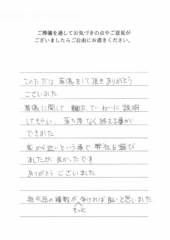 ご葬儀を通してお気づきの点やご意見が
ございましたらご自由にお書きください。
このたびは 葬儀をして頂きありがとう
ございました
葬儀に関して 細かく ていねいに 説明
してもらい、落ち度なく 終える事が
できました
家から近いという事で 弊社を選び
ましたが 良かったです
ありがとう ございました
返礼品の種類が 多ければ 良いと思いました
もっと